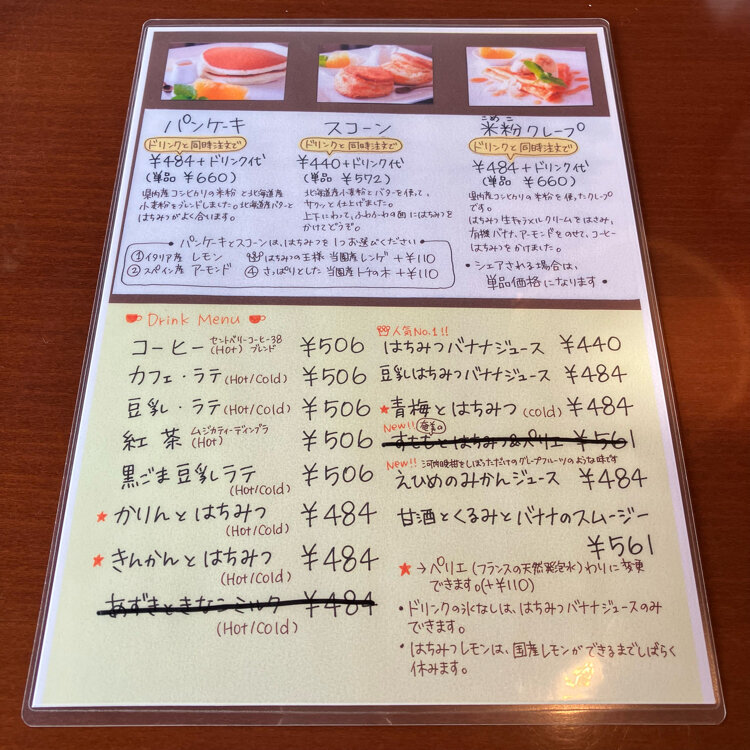 パンケーキ
ドリンクと同時注文で
¥484+ドリンク代
(単品 ¥660)
県内産コシヒカリの米粉と北海道産
小麦粉をブレンドしました。北海道産バターと
はちみつがよく合います。
スコーン
ドリンクと同時注文で
¥440+ドリンク代
(単品 ¥572)
北海道産小麦粉とバターを使って、
サクッと仕上げました。
上下にわって、ふわふわの面にはちみつを
かけてどうぞ。
こめ こ
米粉クレープ
ドリンクと同時注文で
¥484+ドリンク代
(単品 ¥660)
県内産コシヒカリの米粉を使ったクレープ
です。
はちみつ生キャラメルクリームをはさみ、
有機バナナ、アーモンドをのせて、コーヒー
はちみつをかけました。
• シェアされる場合は、
単品価格になります •
• パンケーキとスコーンは、はちみつを1つお選びください •
① イタリア産 レモン
② スペイン産 アーモンド
はちみつの王様 当国産レンゲ +¥110
④ さっぱりとした 当国産トチの木 +¥110
Drink Menu
コーヒー セントベリーコーヒー38 ブレンド (Hot) ¥506
カフェ・ラテ (Hot/Cold) ¥506
豆乳・ラテ (Hot/Cold) ¥506
紅茶 ムジカティーディンブラ (Hot) ¥506
黒ごま豆乳ラテ ¥506
(Hot/Cold)
★ かりんとはちみつ ¥484
(Hot/Cold)
★ きんかんとはちみつ ¥484
(Hot/Cold)
あずきときなこミルク ¥484
(Hot/Cold)
人気No.1!!
はちみつバナナジュース ¥440
豆乳はちみつバナナジュース ¥484
★青梅とはちみつ (cold) ¥484
New!! 奄美の
すももとはちみつ&ペリエ ¥561
New!! 河内晩柑をしぼっただけのグレープフルーツのような味です
えひめのみかんジュース ¥484
甘酒とくるみとバナナのスムージー
¥561
★ → ペリエ (フランスの天然発泡水) わりに変更
できます。(+¥110)
• ドリンクの氷なしは、はちみつバナナジュースのみ
できます。
• はちみつレモンは、国産レモンができるまでしばらく
休みます。